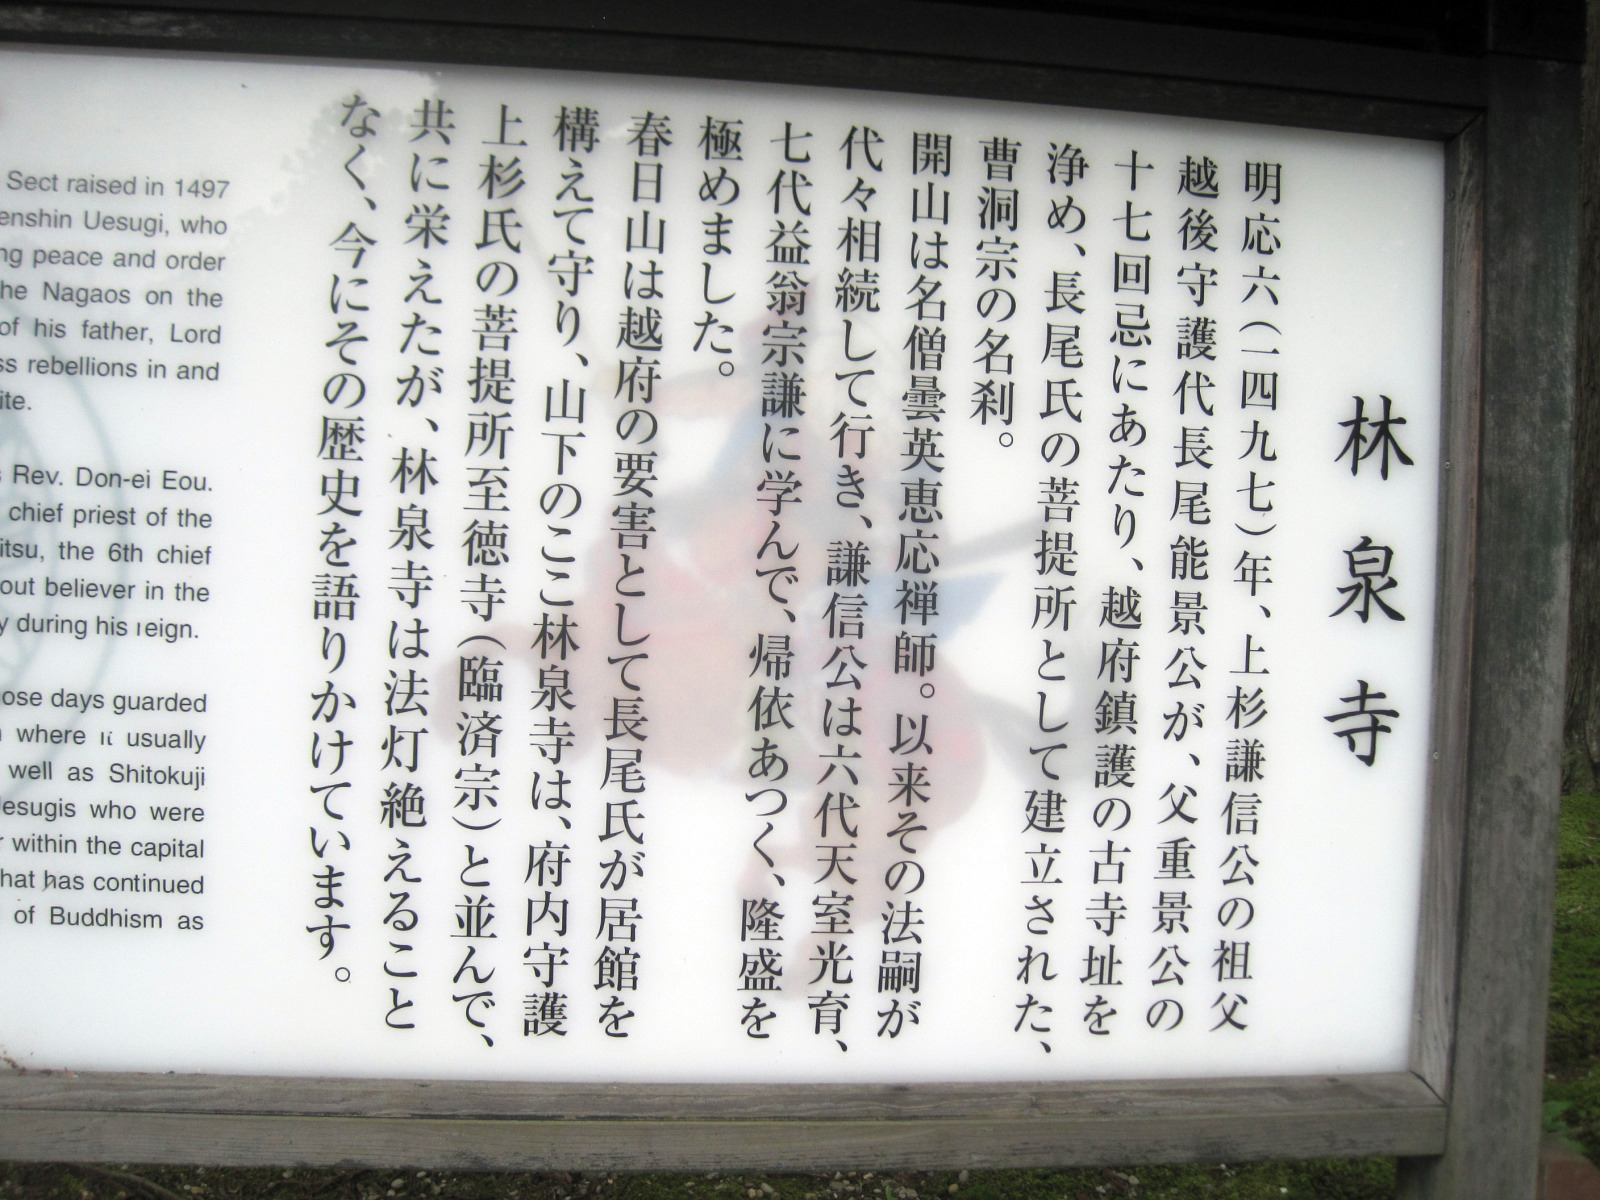 林泉寺
明応六（一四九七）年、上杉謙信公の祖父
越後守護代長尾能景公が、父重景公の
十七回忌にあたり、越府鎮護の古寺址を
浄め、長尾氏の菩提所として建立された、
曹洞宗の名刹。
開山は名僧曇英恵応禅師。以来その法嗣が
代々相続して行き、謙信公は六代天室光育、
七代益翁宗謙に学んで、帰依あつく、隆盛を
極めました。
春日山は越府の要害として長尾氏が居館を
構えて守り、山下のここ林泉寺は、府内守護
上杉氏の菩提所至徳寺（臨済宗）と並んで、
共に栄えたが、林泉寺は法灯絶えること
なく、今にその歴史を語りかけています。
Sect raised in 1497
enshin Uesugi, who
ng peace and order
he Nagaos on the
of his father, Lord
ss rebellions in and
ite.
Rev. Don-ei Eou.
chief priest of the
itsu, the 6th chief
out believer in the
y during his reign.
ose days guarded
where it usually
well as Shitokuji
Jesugis who were
r within the capital
hat has continued
of Buddhism as